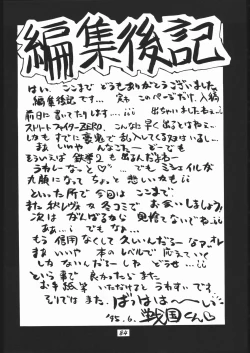 編集後記
はい。ここまで どうもありがとうございました
編集後記です… 実は このページだけ、入稿
前日に書いてたりします…;;; 出ちゃいましたねェ;;
ストリートファイターZERO. こんなに早く出るとはねェ…
しかも すでに豪鬼で乱入してくる奴はいるし…
まぁ いいや んなこたぁ どーでも
もういえば 鉄拳2も出るんだよねー
うれしーなっと♡ …でも ミシェイルが
丸顔になって ちょと 悲しいかもii
といった所で今回は ここまで
また 秋レヴォ 冬コミで お会いしましょう
次は がんばるから 見捨てないでねii
あぁ…;; でもなー…
もう 信用なくして久いんだろーなァ オレ
まぁ いいや 本のレベルで 応えていく
しかないんだろーしね どうせ…;;;
という事で 良かったら また
お手紙等 いただけると うれしいです。
それでは また. ばっはは〜い
'95.6. 戦国くん
24